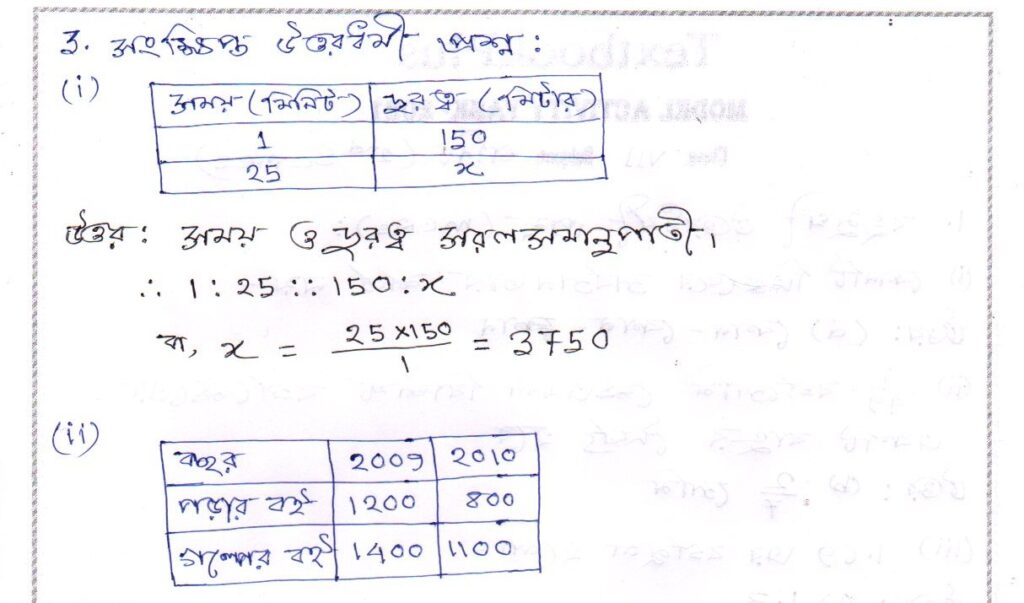 3. সংক্ষিপ্ত উত্তরধর্মী প্রশ্ন :
(i)
সময় (মিনিট) দূরত্ব (মিটার)
1 150
25 x
উত্তর : সময় ও দূরত্ব সরলসমানুপাতী।
∴ 1 : 25 :: 150 : x
বা, x = 25 × 150 / 1 = 3750
(ii)
বছর 2009 2010
পড়ার বই 1200 800
গল্পের বই 1400 1100